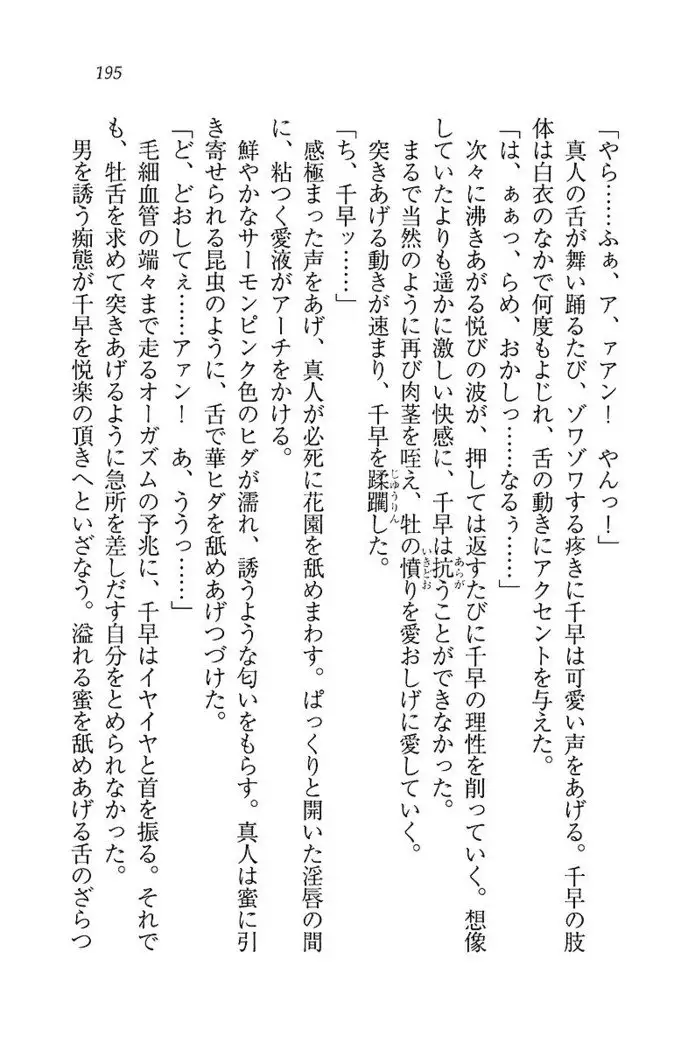 195
「やら……ふぁ、ア、ァアン！　やんっ！」
　真人の舌が舞い踊るたび、ゾワゾワする疼きに千早は可愛い声をあげる。千早の肢
体は白衣のなかで何度もよじれ、舌の動きにアクセントを与えた。
「は、ぁぁっ、らめ、おかしっ……なるぅ……」
　次々に沸きあがる悦びの波が、押しては返すたびに千早の理性を削っていく。想像
していたよりも遥かに激しい快感に、千早は抗うことができなかった。
あらが
　まるで当然のように再び肉茎を咥え、牡の憤りを愛おしげに愛していく。
いきどお
　突きあげる動きが速まり、千早を蹂躙した。
じゅうりん
「ち、千早ッ……」
　感極まった声をあげ、真人が必死に花園を舐めまわす。ぱっくりと開いた淫唇の間
に、粘つく愛液がアーチをかける。
　鮮やかなサーモンピンク色のヒダが濡れ、誘うような匂いをもらす。真人は蜜に引
き寄せられる昆虫のように、舌で華ヒダを舐めあげつづけた。
「ど、どおしてぇ……アァン！　あ、ううっ……」
　毛細血管の端々まで走るオーガズムの予兆に、千早はイヤイヤと首を振る。それで
も、牡舌を求めて突きあげるように急所を差しだす自分をとめられなかった。
　男を誘う痴態が千早を悦楽の頂きへといざなう。溢れる蜜を舐めあげる舌のざらつ